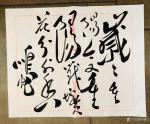 歲々重
陽今又重
陽戰地黃
花分外香